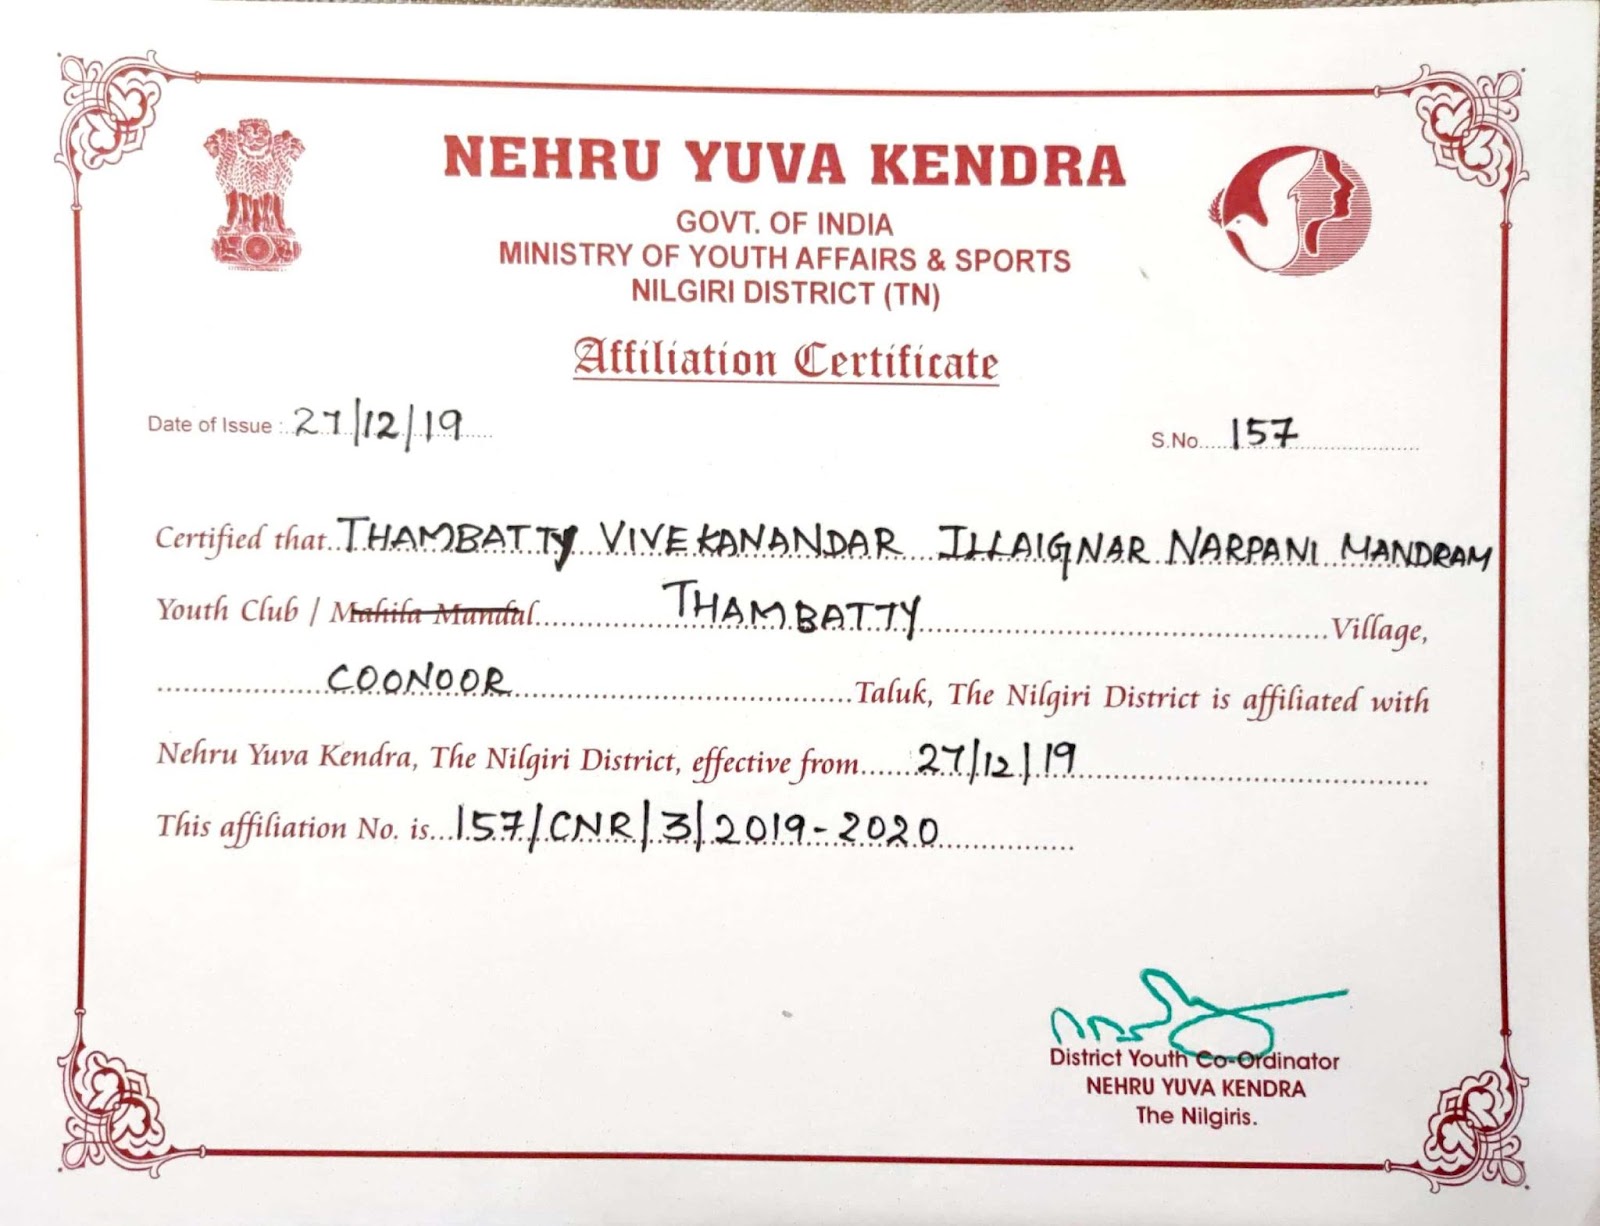 NEHRU YUVA KENDRA
GOVT. OF INDIA
MINISTRY OF YOUTH AFFAIRS & SPORTS
NILGIRI DISTRICT (TN)
Affiliation Certificate
Date of Issue : 27/12/19
S.No. 157
Certified that THAMBATTY VIVEKANANDAR ILLAIGNAR NARPANI MANDRAM
Youth Club / Mahila Mandal THAMBATTY Village,
COONOOR Taluk, The Nilgiri District is affiliated with
Nehru Yuva Kendra, The Nilgiri District, effective from 27/12/19
This affiliation No. is 157/CNR/3/2019-2020
District Youth Co-Ordinator
NEHRU YUVA KENDRA
The Nilgiris.